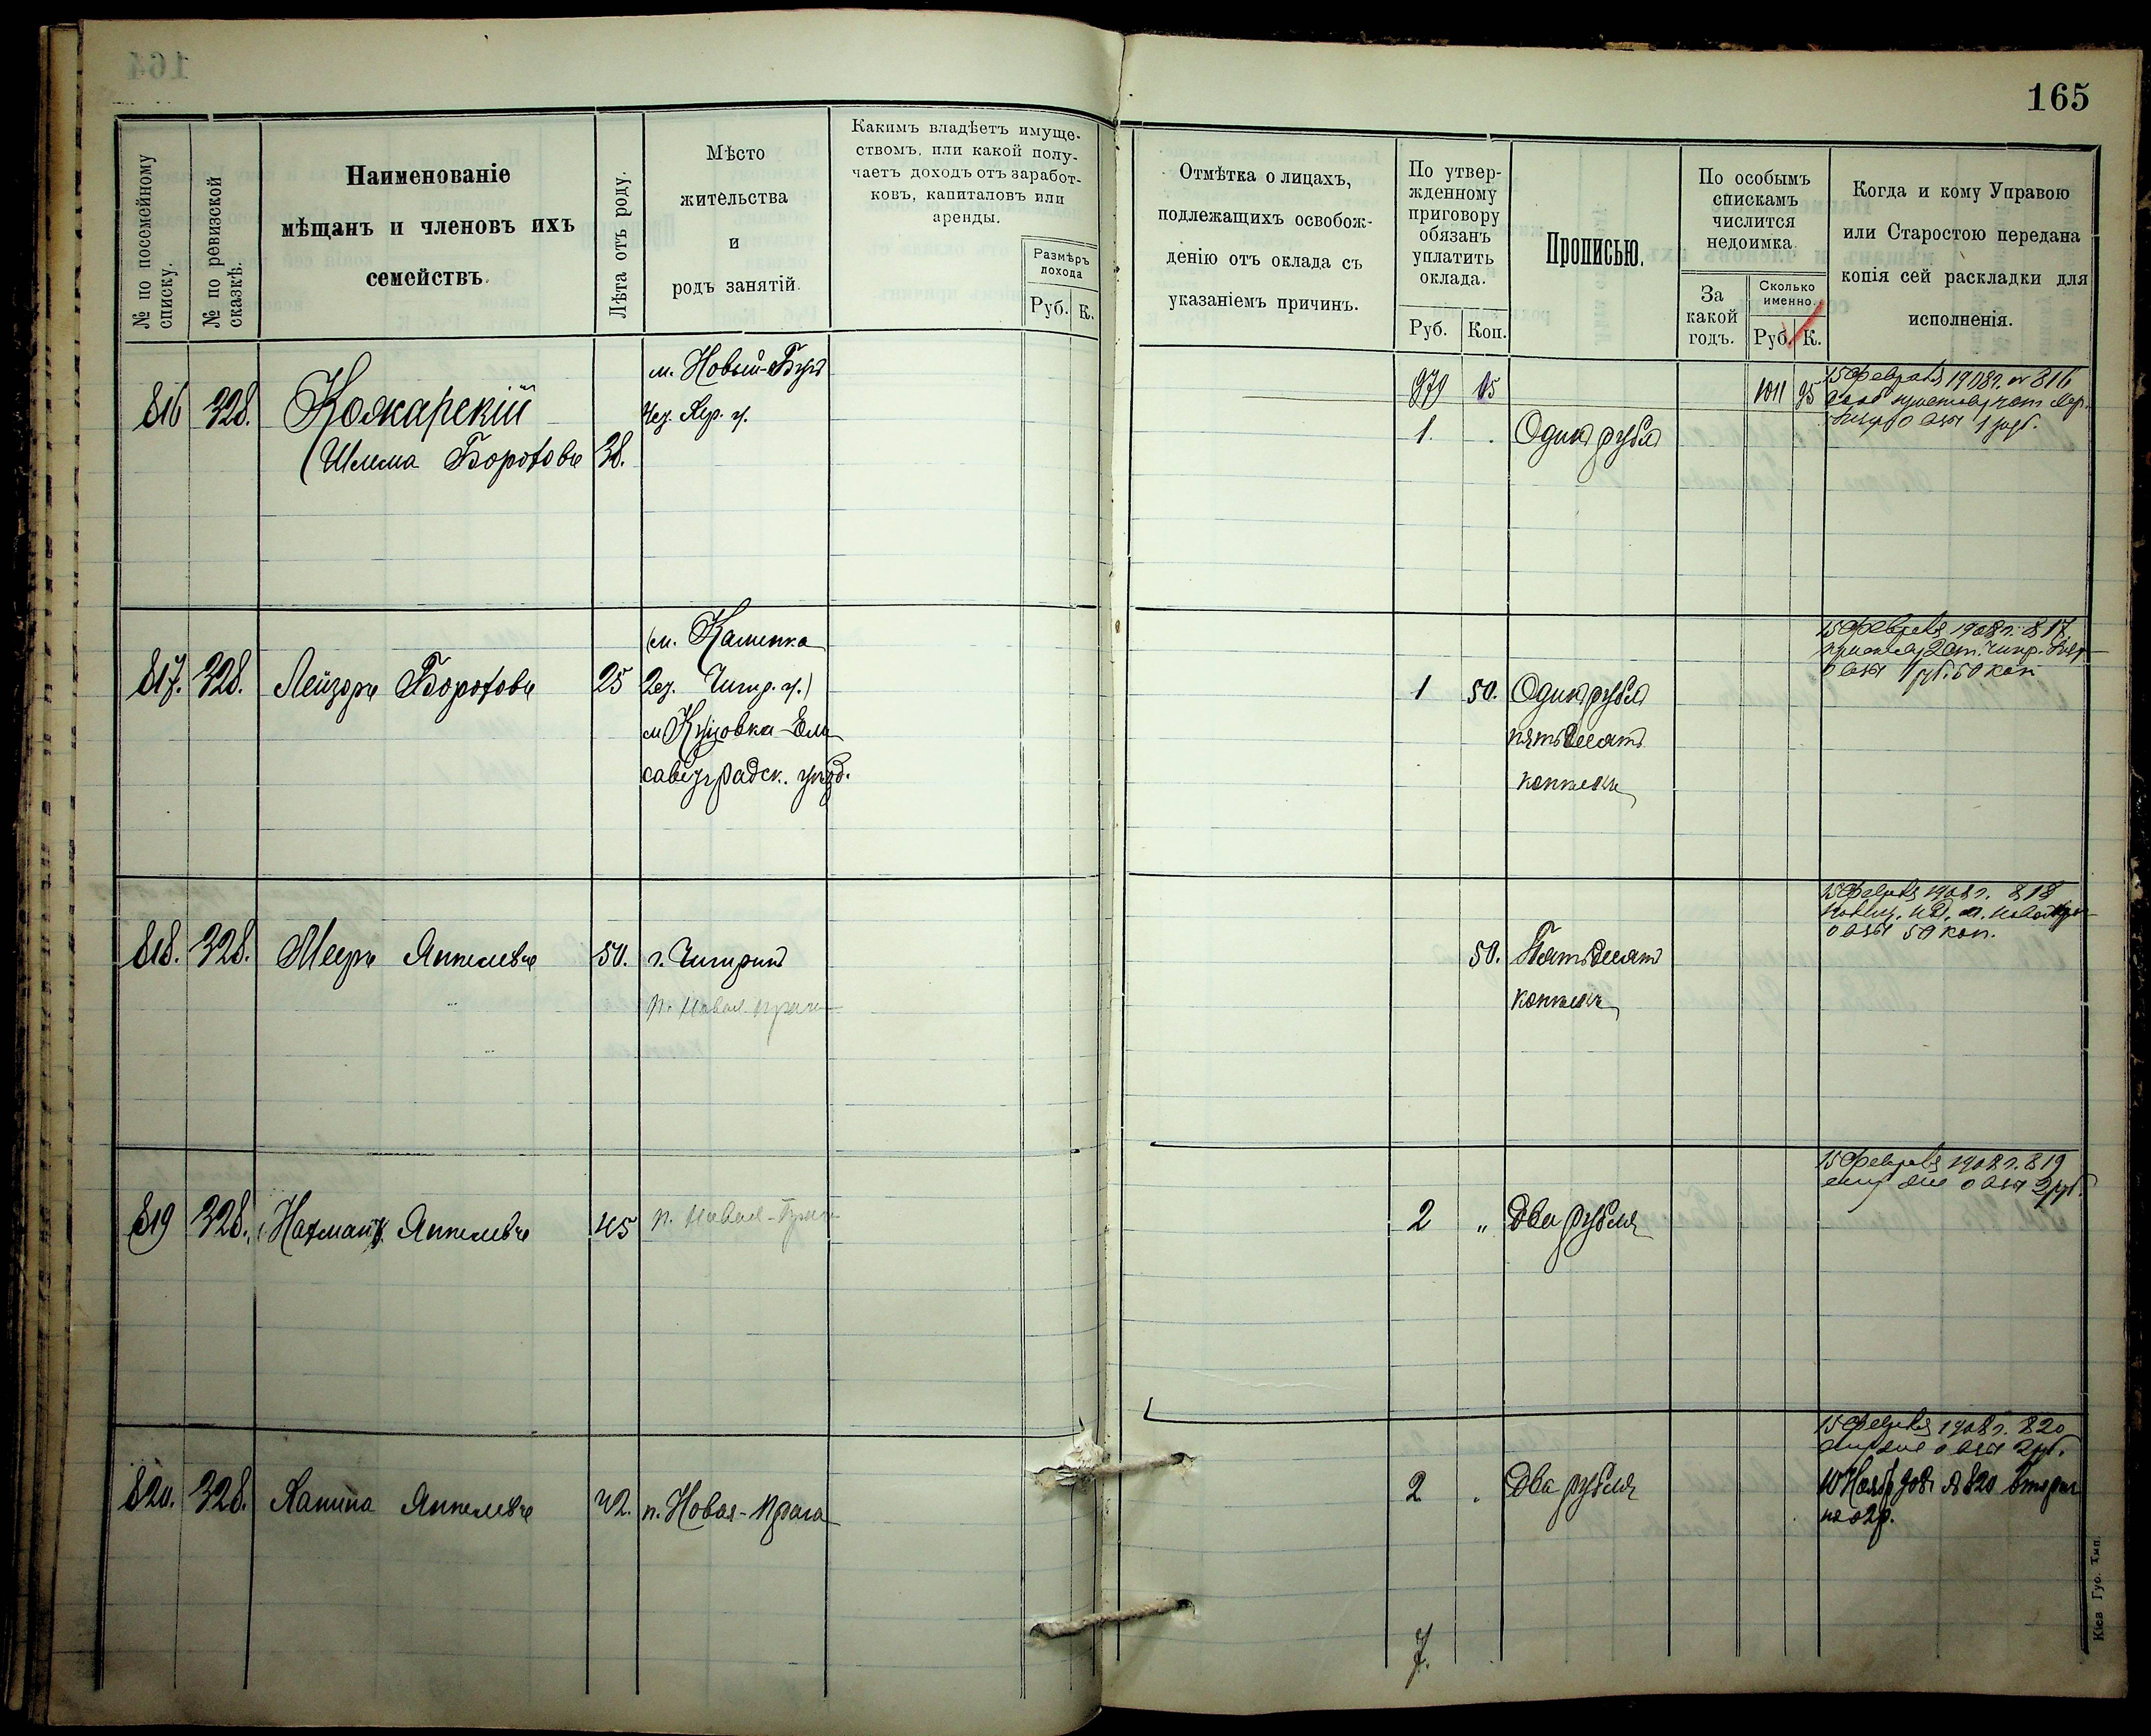 164
165
№ по посемейному списку.
№ по ревизской сказкѣ.
Наименованіе
мѣщанъ и членовъ ихъ
семействъ.
Лѣта отъ роду.
Мѣсто
жительства
и
родъ занятій.
Какимъ владѣетъ имуще-
ствомъ, или какой полу-
чаетъ доходъ отъ заработ-
ковъ, капиталовъ или
аренды.
Размѣръ
дохода
Руб. К.
Отмѣтка о лицахъ,
подлежащихъ освобож-
денію отъ оклада съ
указаніемъ причинъ.
По утвер-
жденному
приговору
обязанъ
уплатить
оклада.
Руб. Коп.
Прописью.
По особымъ
спискамъ
числится
недоимка.
За
какой
годъ.
Сколько
именно.
Руб. К.
Когда и кому Управою
или Старостою передана
копія сей раскладки для
исполненія.
м. Новый-Бугъ
816 328. Кожарскій
Хер. у.
979 15
1011 95
15 февраля 1908 г. № 816
Шлема Бороховъ 38.
1. . Одинъ рубль
1 руб.
м. Каменка
15 февраля 1908 г. 817
817. 328. Лейзоръ Бороховъ 25
Чигир. у.)
1 50. Одинъ рубль
1 руб. 50 коп
м Куцовка Ели
савуградск. уѣзд.
пятьдесятъ
копѣекъ
15 февраля 1908 г. 818
818. 328. Мееръ Янкелевъ 50. г. Чигиринъ
50. Пятьдесятъ
50 коп.
п. Новая-Прага
копѣекъ
15 февраля 1908 г. 819
819 328. Нахманъ Янкелевъ 45 п. Новая-Прага
2 „ Два рубля
2 руб.
15 февраля 1908 г. 820
2 руб.
820. 328. Хаина Янкелевъ 42. п. Новая-Прага
2 . Два рубля
10 Нояб № 820
7.
Кіев Губ. Тип.